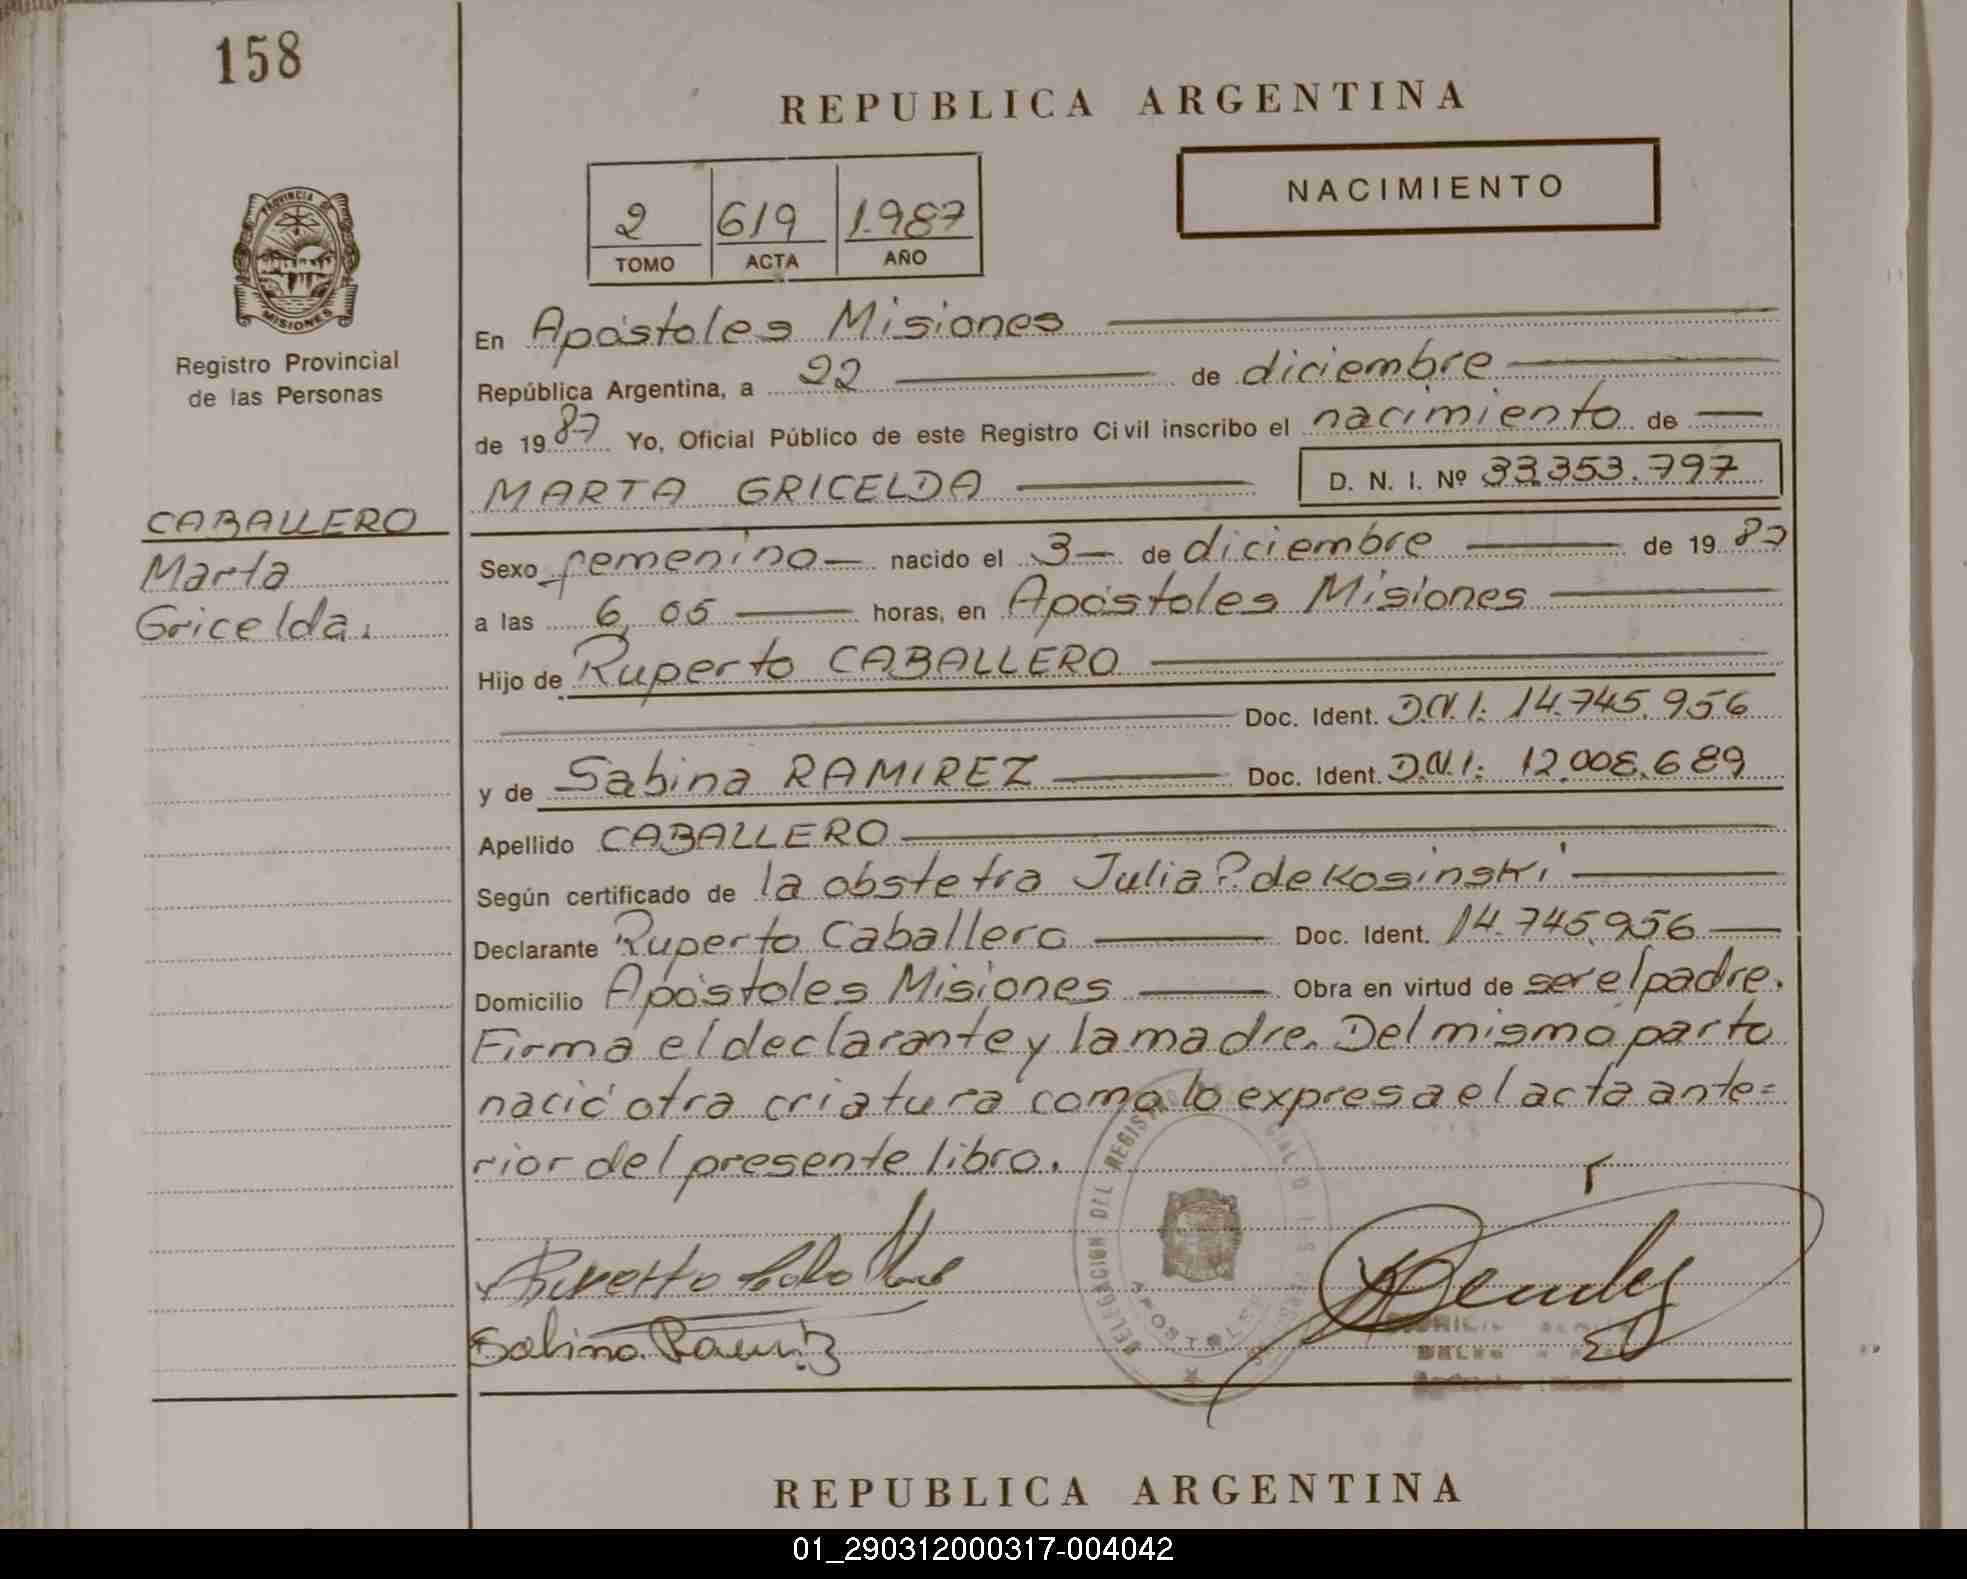 158
REPUBLICA ARGENTINA
NACIMIENTO
2 619 1.987
TOMO ACTA AÑO
PROVINCIA
MISIONES
Registro Provincial
de las Personas
CABALLERO
Marta
Gricelda.
En Apóstoles Misiones
República Argentina, a 22 de diciembre
de 1987 Yo, Oficial Público de este Registro Civil inscribo el nacimiento de
MARTA GRICELDA D. N. I. Nº 33.353.797
Sexo femenino nacido el 3 de diciembre de 1987
a las 6,05 horas, en Apóstoles Misiones
Hijo de Ruperto CABALLERO
Doc. Ident. D.N.I: 14.745.956
y de Sabina RAMIREZ Doc. Ident. D.N.I: 12.008.689
Apellido CABALLERO
Según certificado de la obstetra Julia P. de Kosinski
Declarante Ruperto Caballero Doc. Ident. 14.745.956
Domicilio Apóstoles Misiones Obra en virtud de ser el padre.
Firma el declarante y la madre. Del mismo parto
nació otra criatura como lo expresa el acta ante=
rior del presente libro.
DELEGACION DEL REGISTRO
APOSTOLES
Sabina Ramirez
REPUBLICA ARGENTINA
01_290312000317-004042